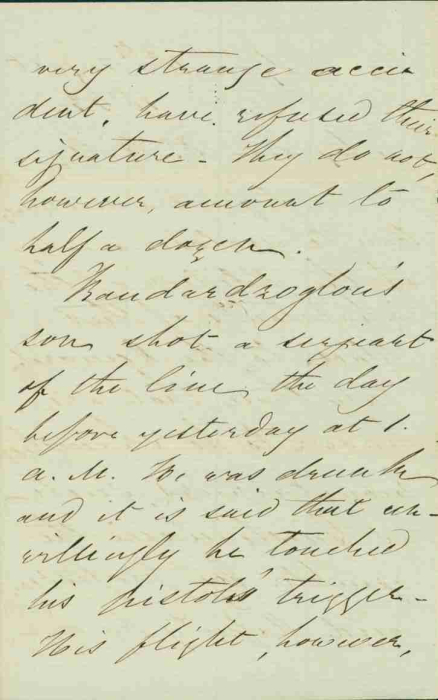 very strange acci
dent, have refused their
signature - They do not,
however, amount to
half a dozen.
Baudardzoglou's
son shot a sergeant
of the line the day
before yesterday at 1.
a. M. He was drunk
and it is said that un-
willingly he touched
his pistol's trigger -
His flight, however,